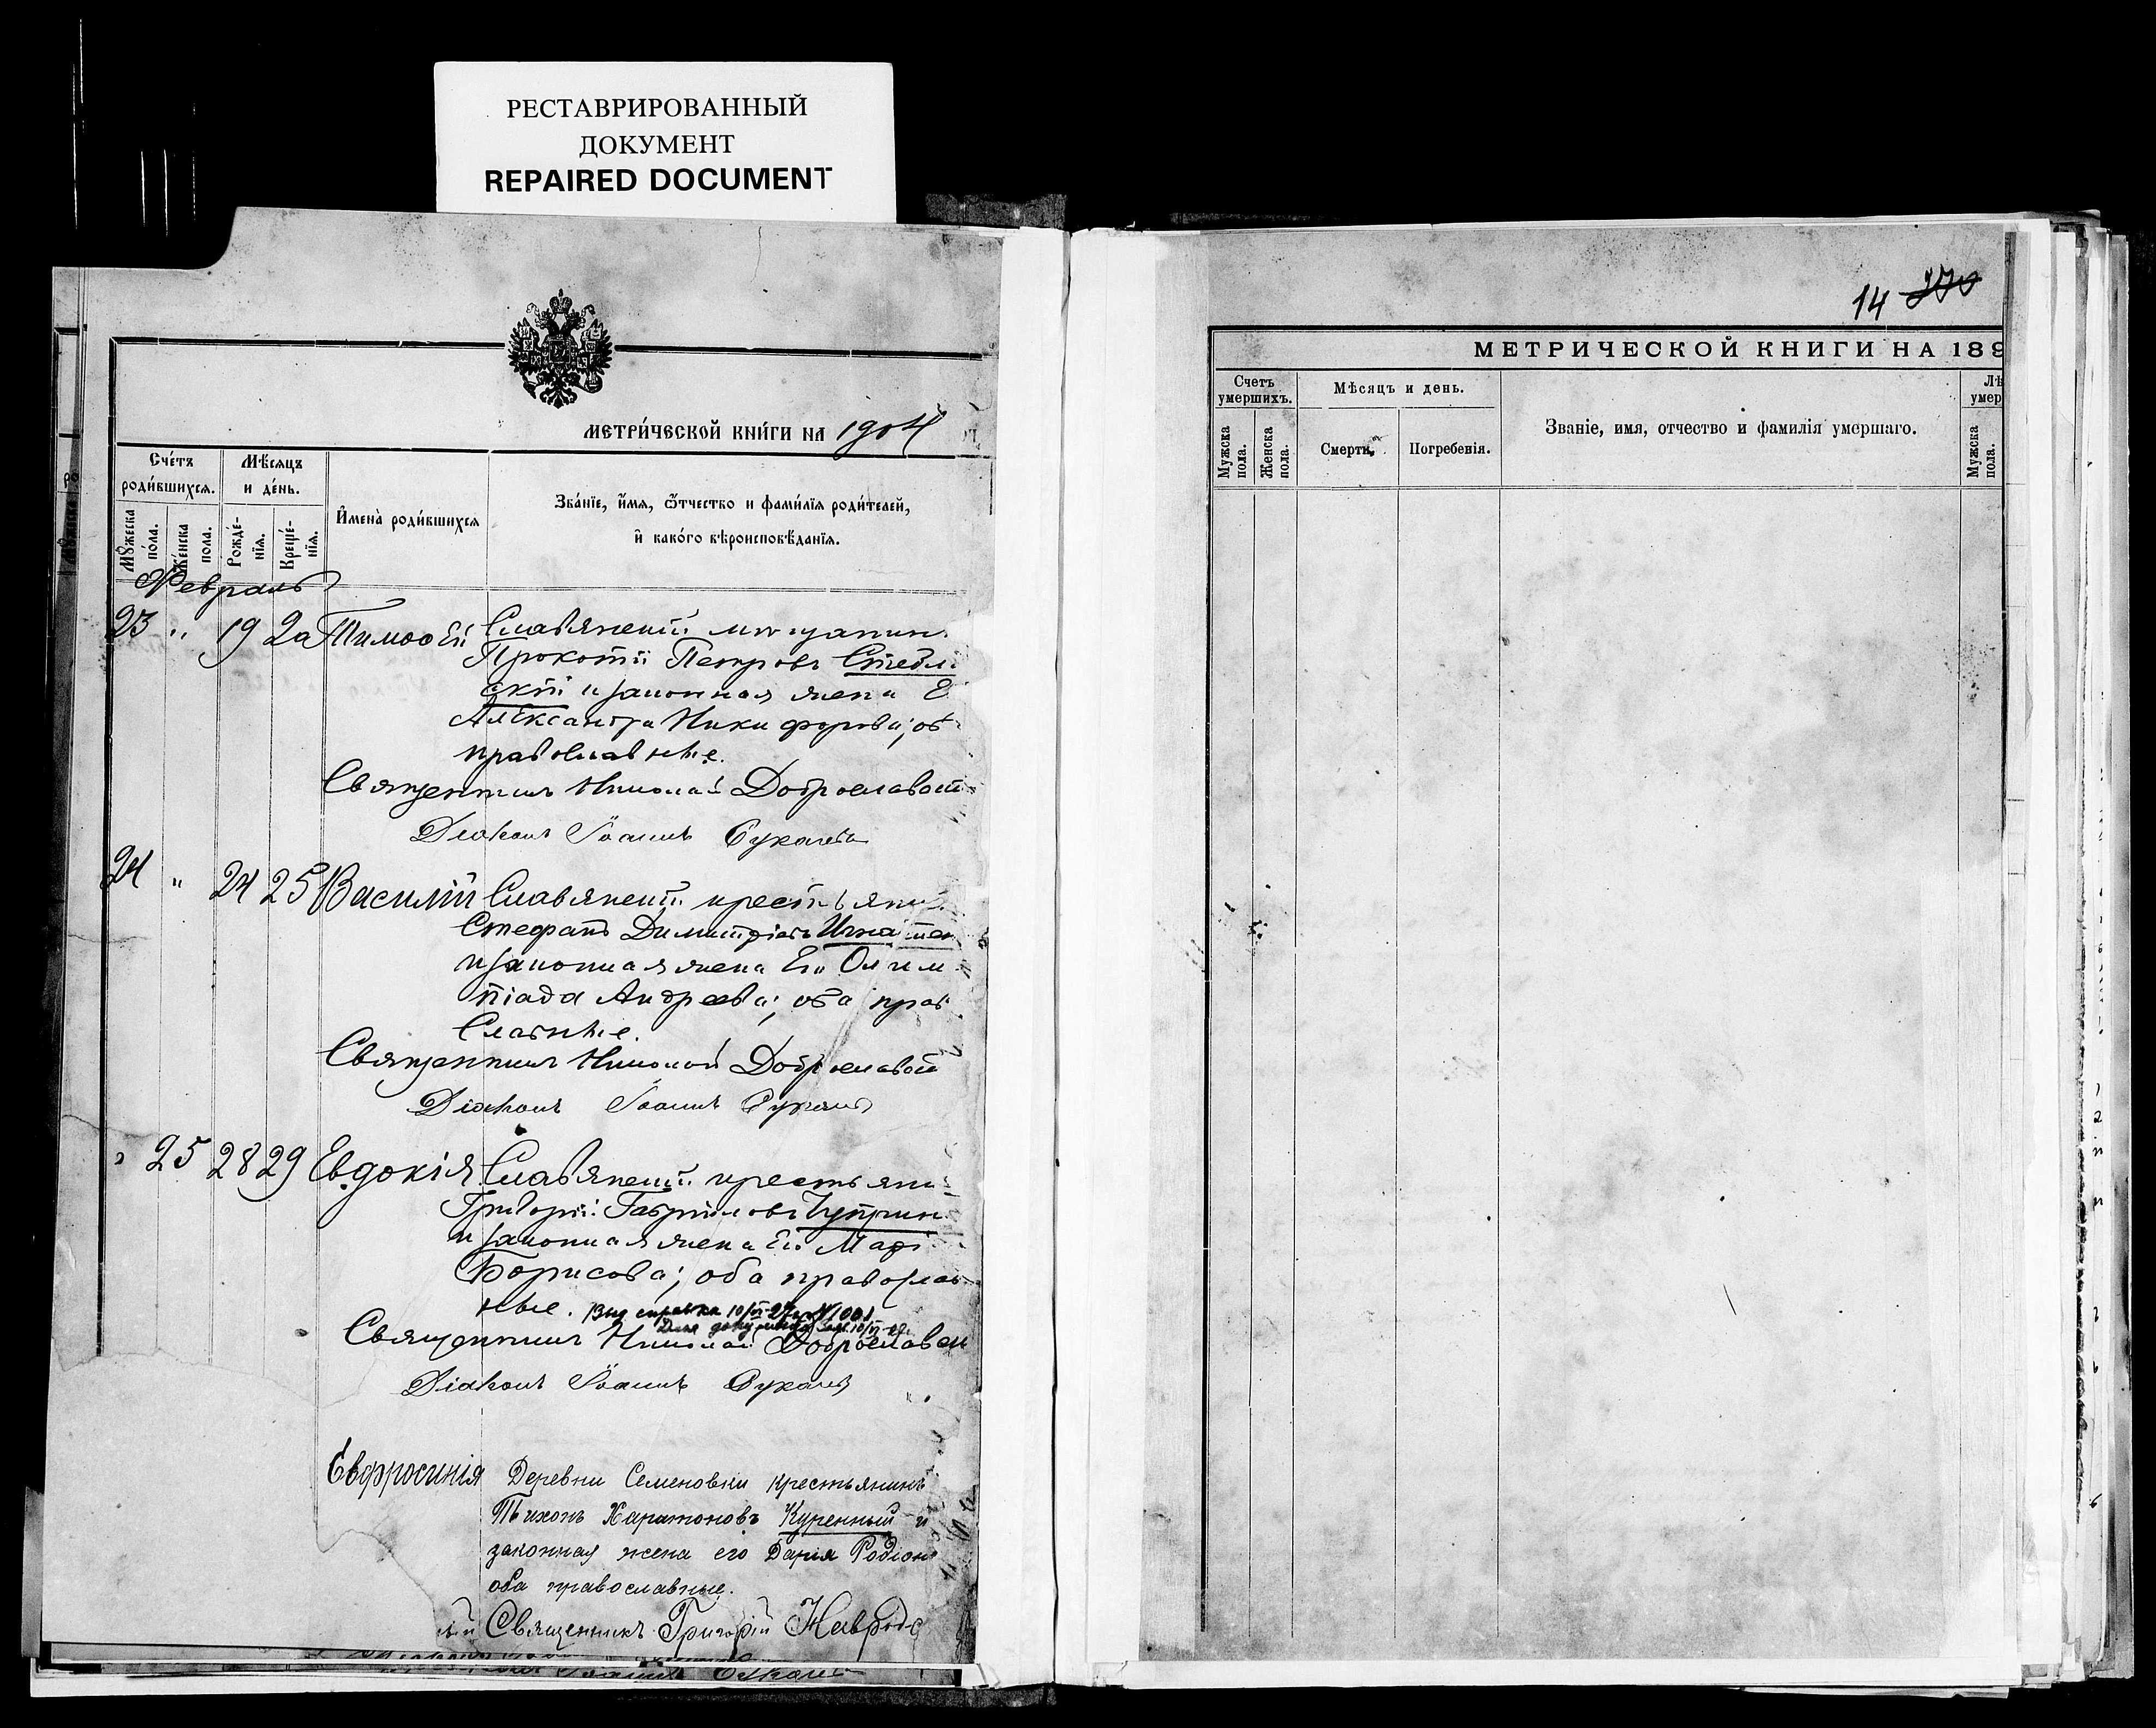 РЕСТАВРИРОВАННЫЙ
ДОКУМЕНТ
REPAIRED DOCUMENT
МЕТРИ́ЧЕСКОЙ КНИ́ГИ НА 1904
Сче́тъ
роди́вшихся.
Мѣ́сяцъ
и де́нь.
Мꙋжеска
по́ла.
Же́нска
пола.
Рожде́-
нїѧ.
Креще́-
нїѧ.
И҆мена̀ роди́вшихсѧ
Зва́нїе, и҆́мѧ, ѻ҆́тчество и фами́лїѧ роди́телей,
и҆ како́гѡ вѣроисповѣ́данїѧ.
Февраль
23 " 19 20 Тимоѳей Славянскій мѣщанинъ
Прокопій Петровъ Стебли
скій и законная жена Е
Александра Никифорова; об
православные.
Священникъ Николай Доброславскій
Діаконъ Іоаннъ
24 " 24 25 Василій Славянскій крестьянин
Стефанъ Димитріевъ Игнатен
и законная жена Его Олим
піада Андреева; оба прав
славные.
Священникъ Николай Доброславскій
Діаконъ Іоаннъ
" 25 28 29 Евдокія Славянскій крестьяни
Григорій Гавриловъ Чуприн
и законная жена Его Марі
Борисова; оба православ
ные. Выд справка 10/VI-27г. №1001
Для
Священникъ Николай Доброславск
Діаконъ Іоаннъ
Евфросинія Деревни Семеновки крестьянинъ
Тихонъ Харитоновъ Куренный и
законная жена его Дарія Родіон
оба православные.
Священникъ Григорій Навродс
14 270
МЕТРИЧЕСКОЙ КНИГИ НА 189
Счетъ
умершихъ.
Мѣсяцъ и день.
Мужска
пола.
Женска
пола.
Смерти.
Погребенія.
Званіе, имя, отчество и фамилія умершаго.
Лѣ
умер
Мужска
пола.